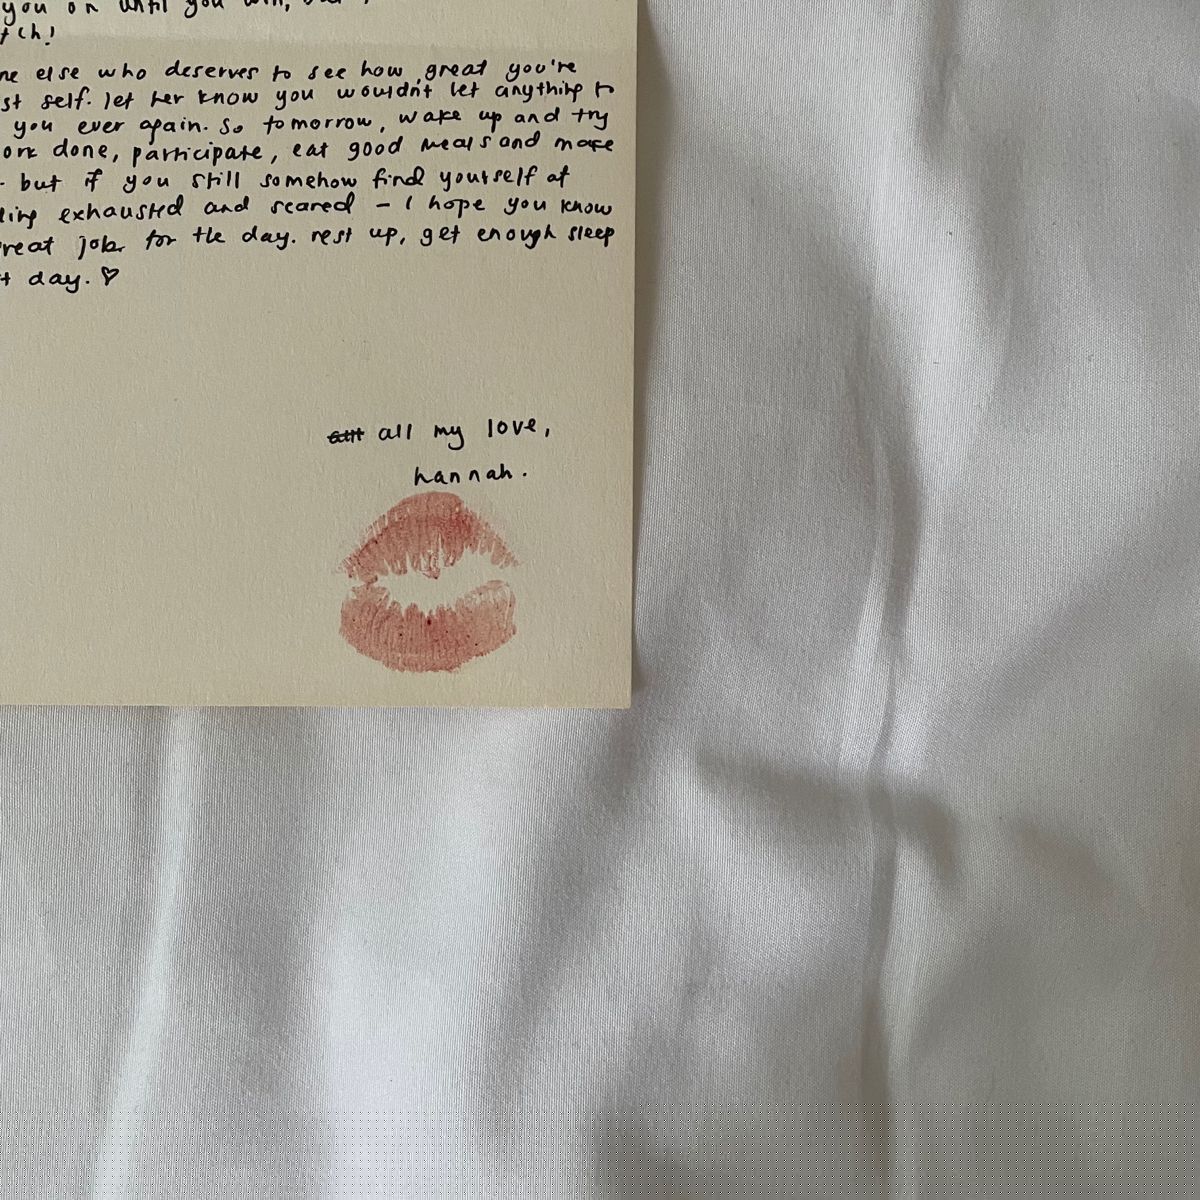 you on until you win,
tch!
ne else who deserves to see how great you're
st self. let her know you wouldn't let anything to
you ever again. so tomorrow, wake up and try
ork done, participate, eat good meals and make
- but if you still somehow find yourself at
ling exhausted and scared - I hope you know
reat job for the day. rest up, get enough sleep
t day. ♡
all my love,
hannah.